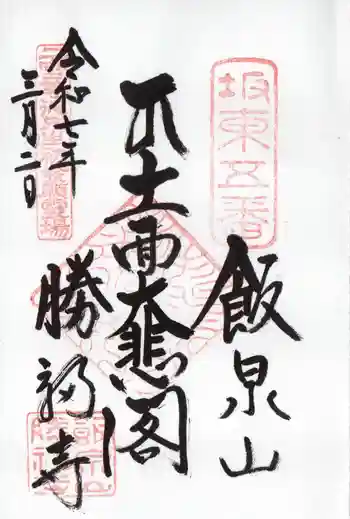 坂東五番
飯泉山
十一面大悲閣
令和七年
三月二日
勝福寺